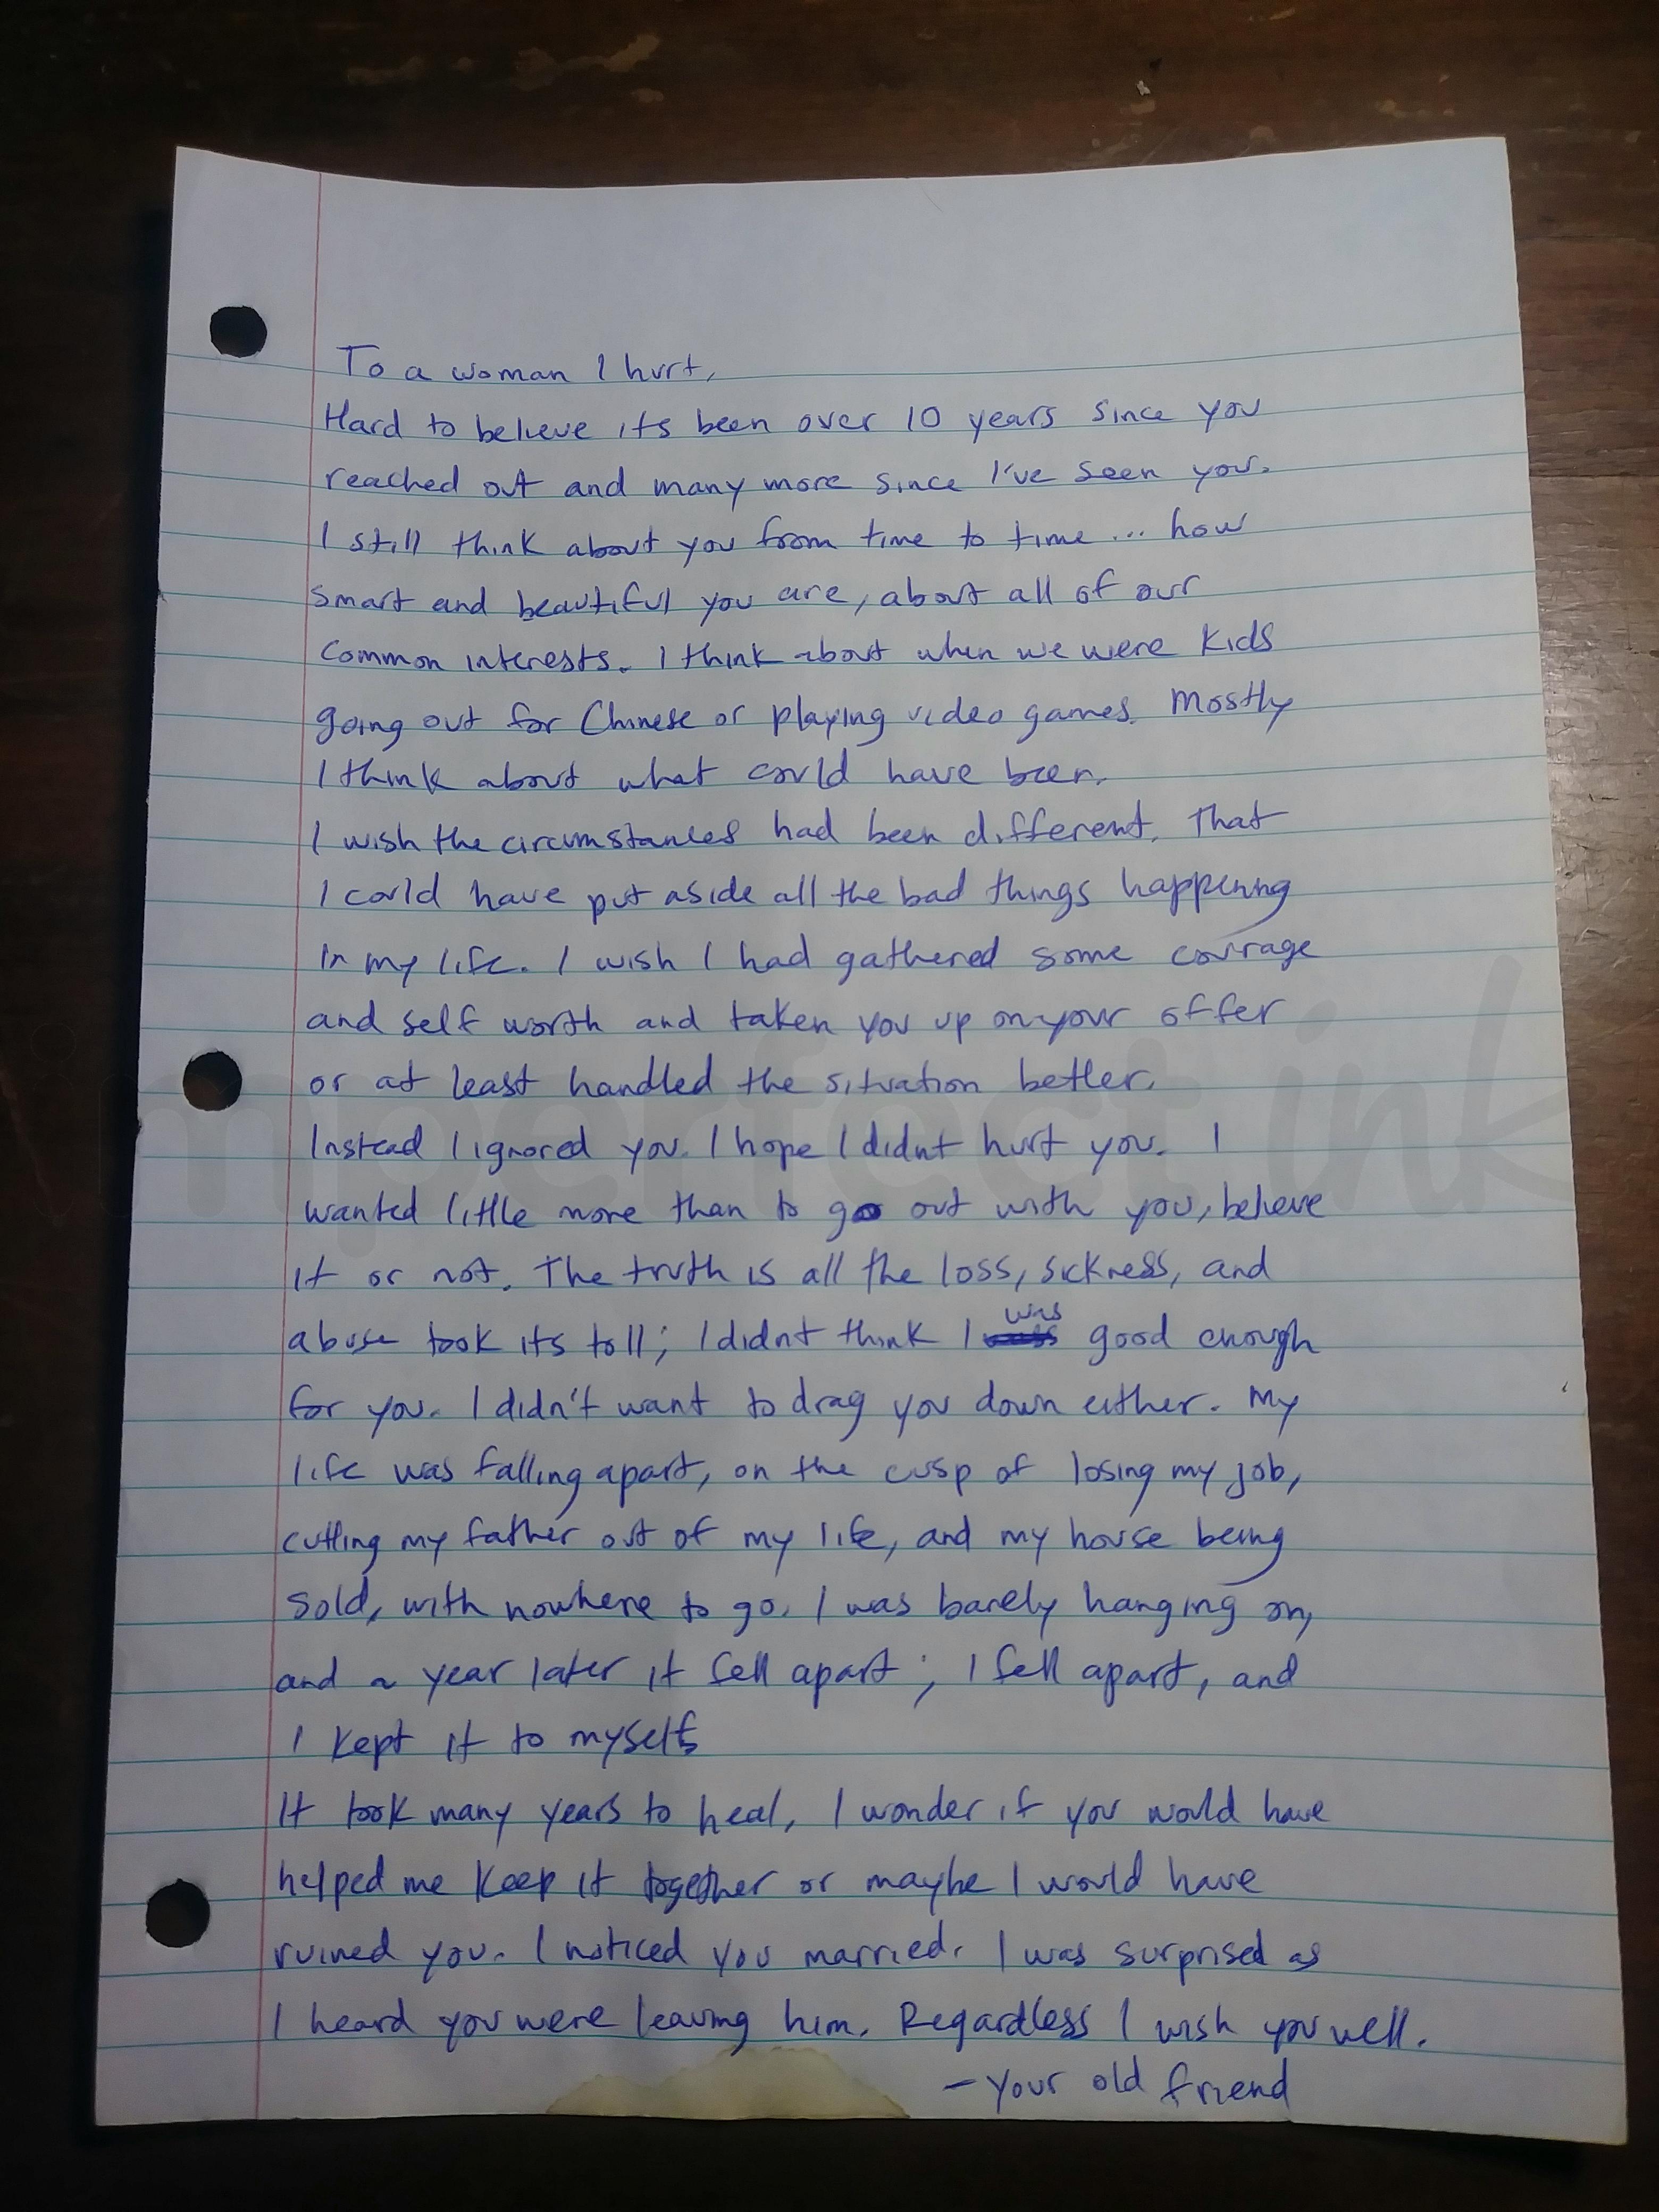 To a woman I hurt,
Hard to believe its been over 10 years since you
reached out and many more since I've seen you.
I still think about you from time to time... how
smart and beautiful you are, about all of our
common interests. I think about when we were kids
going out for Chinese or playing video games. Mostly
I think about what could have been.
I wish the circumstances had been different. That
I could have put aside all the bad things happening
in my life. I wish I had gathered some courage
and self worth and taken you up on your offer
or at least handled the situation better.
Instead I ignored you. I hope I didnt hurt you. I
wanted little more than to go out with you, believe
it or not. The truth is all the loss, sickness, and
abuse took its toll; I didnt think I was good enough
for you. I didn't want to drag you down either. My
life was falling apart, on the cusp of losing my job,
cutting my father out of my life, and my house being
sold, with nowhere to go. I was barely hanging on,
and a year later it fell apart; I fell apart, and
I kept it to myself
It took many years to heal, I wonder if you would have
helped me keep it together or maybe I would have
ruined you. I noticed you married. I was surprised as
I heard you were leaving him. Regardless I wish you well.
- Your old friend
imperfect ink